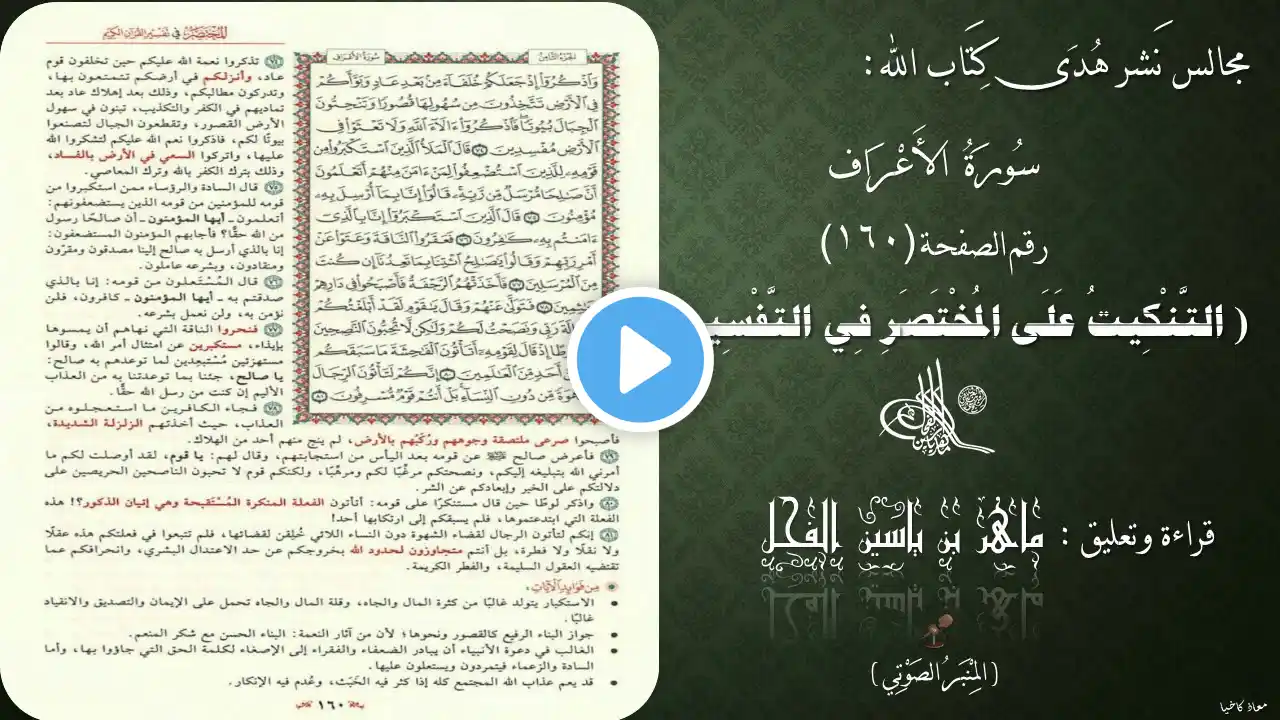 مجالس نَشر هُدَى كِتَاب الله :
سُورَةُ الأَعْرَاف
رقم الصفحة (١٦٠)
( التَّنْكِيتُ عَلَى المُخْتَصَرِ فِي التَّفْسِي
قراءة وتعليق : ماهر بن ياسين الفحل
(المِنْبَرُ الصَوْتِي)
معاذ كاخيا
المختصر في تفسير القرآن الكريم
الجزء الثامن
سورة الأعراف
وَاذْكُرُوا إِذْ جَعَلَكُمْ خُلَفَاءَ مِنْ بَعْدِ عَادٍ وَبَوَّأَكُمْ
فِي الْأَرْضِ تَتَّخِذُونَ مِنْ سُهُولِهَا قُصُورًا وَتَنْحِتُونَ
الْجِبَالَ بُيُوتًا فَاذْكُرُوا آلَاءَ اللَّهِ وَلَا تَعْثَوْا فِي
الْأَرْضِ مُفْسِدِينَ ٧٤ قَالَ الْمَلَأُ الَّذِينَ اسْتَكْبَرُوا مِنْ
قَوْمِهِ لِلَّذِينَ اسْتُضْعِفُوا لِمَنْ آمَنَ مِنْهُمْ أَتَعْلَمُونَ
أَنَّ صَالِحًا مُرْسَلٌ مِنْ رَبِّهِ قَالُوا إِنَّا بِمَا أُرْسِلَ بِهِ
مُؤْمِنُونَ ٧٥ قَالَ الَّذِينَ اسْتَكْبَرُوا إِنَّا بِالَّذِي
آمَنْتُمْ بِهِ كَافِرُونَ ٧٦ فَعَقَرُوا النَّاقَةَ وَعَتَوْا عَنْ
أَمْرِ رَبِّهِمْ وَقَالُوا يَا صَالِحُ ائْتِنَا بِمَا تَعِدُنَا إِنْ كُنْتَ
مِنَ الْمُرْسَلِينَ ٧٧ فَأَخَذَتْهُمُ الرَّجْفَةُ فَأَصْبَحُوا فِي دَارِهِمْ
جَاثِمِينَ ٧٨ فَتَوَلَّى عَنْهُمْ وَقَالَ يَا قَوْمِ لَقَدْ أَبْلَغْتُكُمْ
رِسَالَةَ رَبِّي وَنَصَحْتُ لَكُمْ وَلَكِنْ لَا تُحِبُّونَ النَّاصِحِينَ
إِذْ قَالَ لِقَوْمِهِ أَتَأْتُونَ الْفَاحِشَةَ مَا سَبَقَكُمْ
أَحَدٍ مِنَ الْعَالَمِينَ ٨٠ إِنَّكُمْ لَتَأْتُونَ الرِّجَالَ
شَهْوَةً مِنْ دُونِ النِّسَاءِ بَلْ أَنْتُمْ قَوْمٌ مُسْرِفُونَ ٨١
٧٤ تذكروا نعمة الله عليكم حين تخلفون قوم
عاد، وأنزلكم في أرضكم تتمتعون بها،
وتدركون مطالبكم، وذلك بعد إهلاك عاد بعد
تماديهم في الكفر والتكذيب، تبنون في سهول
الأرض القصور، وتقطعون الجبال لتصنعوا
بيوتًا لكم، فاذكروا نعم الله عليكم لتشكروا الله
عليها، واتركوا السعي في الأرض بالفساد،
وذلك بترك الكفر بالله وترك المعاصي.
٧٥ قال السادة والرؤساء ممن استكبروا من
قومه للمؤمنين من قومه الذين يستضعفونهم:
أتعلمون ـ أيها المؤمنون ـ أن صالحًا رسول
من الله حقًّا؟ فأجابهم المؤمنون المستضعفون:
إنا بالذي أرسل به صالح إلينا مصدقون ومقرّون
ومنقادون، وبشرعه عاملون.
٧٦ قال المُسْتَعلون من قومه: إنا بالذي
صدقتم به ـ أيها المؤمنون ـ كافرون، فلن
نؤمن به، ولن نعمل بشرعه.
٧٧ فنحروا الناقة التي نهاهم أن يمسوها
بإيذاء، مستكبرين عن امتثال أمر الله، وقالوا
مستهزئين مُسْتبعدين لما توعدهم به صالح:
يا صالح، جئنا بما توعدتنا به من العذاب
الأليم إن كنت من رسل الله حقًّا.
٧٨ فجاء الكافرين ما استعجلوه من
العذاب، حيث أخذتهم الزلزلة الشديدة،
فأصبحوا صرعى ملتصقة وجوههم ورُكَبُهم بالأرض، لم ينج منهم أحد من الهلاك.
٧٩ فأعرض صالح ﷺ عن قومه بعد اليأس من استجابتهم، وقال لهم: يا قوم، لقد أوصلت لكم ما
أمرني الله بتبليغه إليكم، ونصحتكم مرغّبًا لكم ومرهّبًا، ولكنكم قوم لا تحبون الناصحين الحريصين على
دلالتكم على الخير وإبعادكم عن الشر.
٨٠ واذكر لوطًا حين قال مستنكرًا على قومه: أتأتون الفعلة المنكرة المُسْتقبحة وهي إتيان الذكور؟! هذه
الفعلة التي ابتدعتموها، فلم يسبقكم إلى ارتكابها أحد!
٨١ إنكم لتأتون الرجال لقضاء الشهوة دون النساء اللاتي خُلِقن لقضائها، فلم تتبعوا في فعلتكم هذه عقلًا
ولا نقلًا ولا فطرة، بل أنتم متجاوزون لحدود الله بخروجكم عن حد الاعتدال البشري، وانحرافكم عما
تقتضيه العقول السليمة، والفطر الكريمة.
من فوائد الآيات:
• الاستكبار يتولد غالبًا من كثرة المال والجاه، وقلة المال والجاه تحمل على الإيمان والتصديق والانقياد
غالبًا.
• جواز البناء الرفيع كالقصور ونحوها؛ لأن من آثار النعمة: البناء الحسن مع شكر المنعم.
• الغالب في دعوة الأنبياء أن يبادر الضعفاء والفقراء إلى الإصغاء لكلمة الحق التي جاؤوا بها، وأما
السادة والزعماء فيتمردون ويستعلون عليها.
• قد يعم عذاب الله المجتمع كله إذا كثر فيه الخَبَث، وعُدم فيه الإنكار.
١٦٠